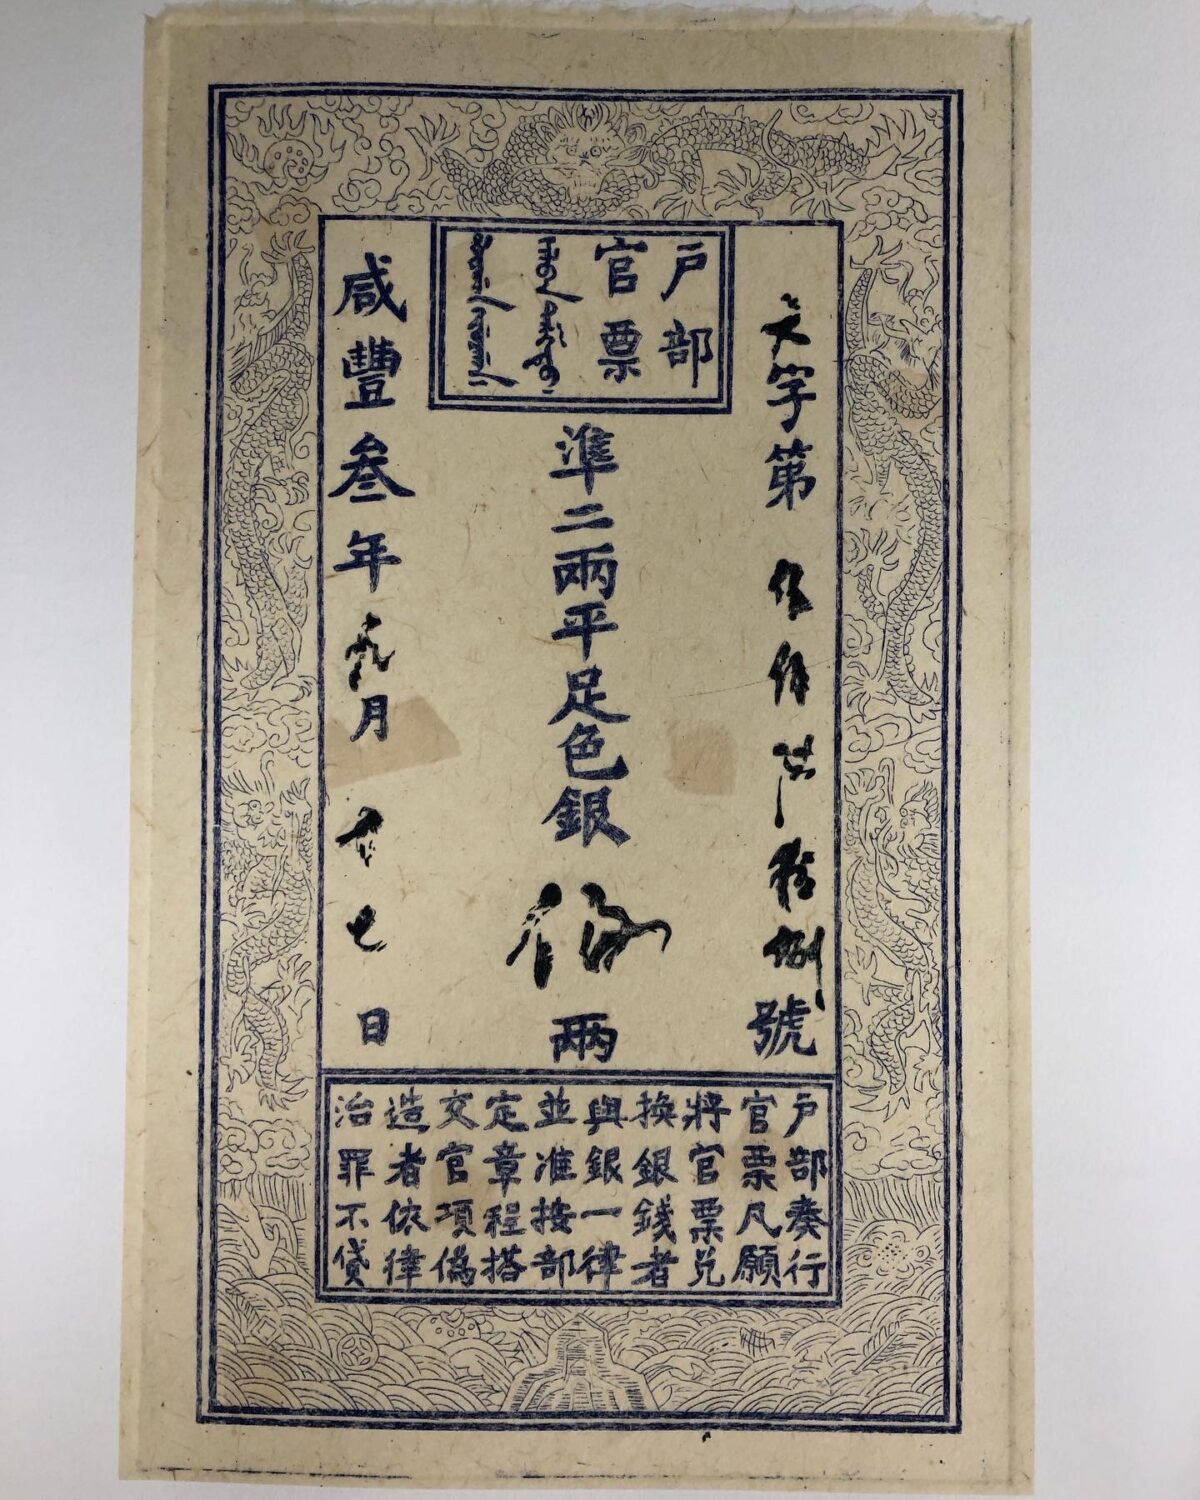 户部
官票
天字第 伍仟 拾捌號
準二兩平足色銀伍兩
咸豐叁年 月 七日
户部奏行
官票凡願
將官票兑
換銀錢者
與銀一律
並准按部
定章程搭
交官項偽
造者依律
治罪不貸